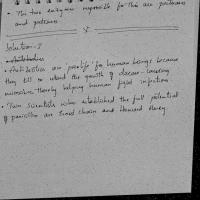 • The two enzymes responsible for this are proteases
and proteases.
Solution-5
• Antibodies
• Antibiotics are "prolife" for human beings because
they kill or retard the growth of disease-causing
microbes thereby helping human fight infections
• Two scientists who established the full potential
of penicillin are Ernest Chain and Howard Florey